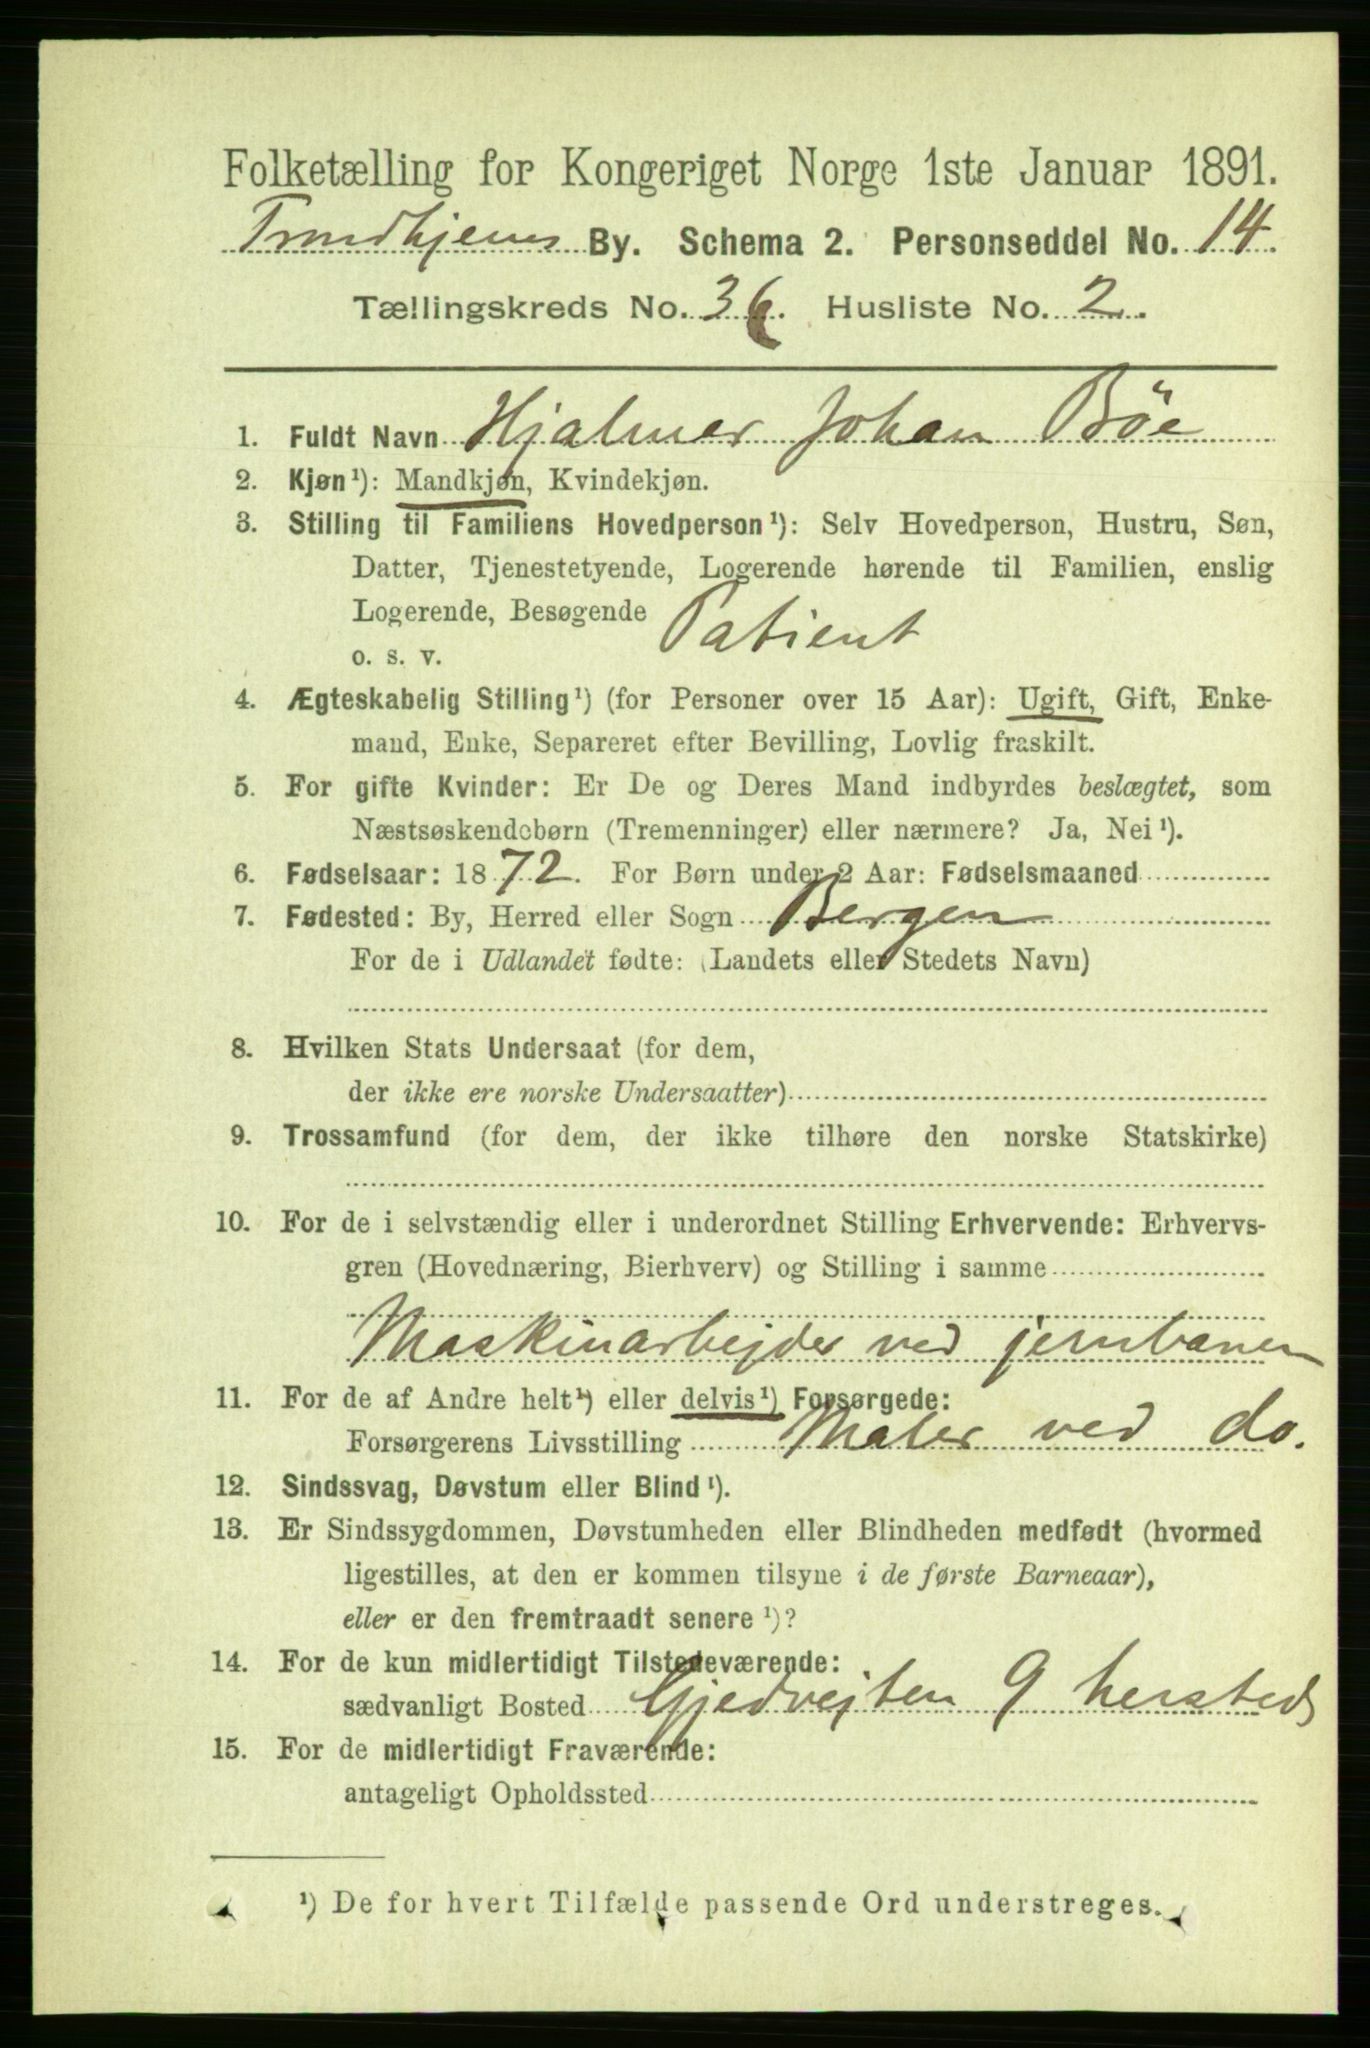 Folketælling for Kongeriget Norge 1ste Januar 1891.
Trondhjems By. Schema 2. Personseddel No. 14.
Tællingskreds No. 36. Husliste No. 2.
1. Fuldt Navn Hjalmar Johan Böe
2. Kjøn¹): Mandkjøn, Kvindekjøn.
3. Stilling til Familiens Hovedperson¹): Selv Hovedperson, Hustru, Søn,
Datter, Tjenestetyende, Logerende hørende til Familien, enslig
Logerende, Besøgende Patient
o. s. v.
4. Ægteskabelig Stilling¹) (for Personer over 15 Aar): Ugift, Gift, Enke-
mand, Enke, Separeret efter Bevilling, Lovlig fraskilt.
5. For gifte Kvinder: Er De og Deres Mand indbyrdes beslægtet, som
Næstsøskendebørn (Tremenninger) eller nærmere? Ja, Nei¹).
6. Fødselsaar: 1872. For Børn under 2 Aar: Fødselsmaaned
7. Fødested: By, Herred eller Sogn Bergen
For de i Udlandet fødte: (Landets eller Stedets Navn)
8. Hvilken Stats Undersaat (for dem,
der ikke ere norske Undersaatter)
9. Trossamfund (for dem, der ikke tilhøre den norske Statskirke)
10. For de i selvstændig eller i underordnet Stilling Erhvervende: Erhvervs-
gren (Hovednæring, Bierhverv) og Stilling i samme
Maskinarbejder ved jernbanen
11. For de af Andre helt¹) eller delvis¹) Forsørgede:
Forsørgerens Livsstilling Maler ved do.
12. Sindssvag, Døvstum eller Blind¹).
13. Er Sindssygdommen, Døvstumheden eller Blindheden medfødt (hvormed
ligestilles, at den er kommen tilsyne i de første Barneaar),
eller er den fremtraadt senere¹)?
14. For de kun midlertidigt Tilstedeværende:
sædvanligt Bosted Gjedvejten 9 hersteds
15. For de midlertidigt Fraværende:
antageligt Opholdssted
¹) De for hvert Tilfælde passende Ord understreges.